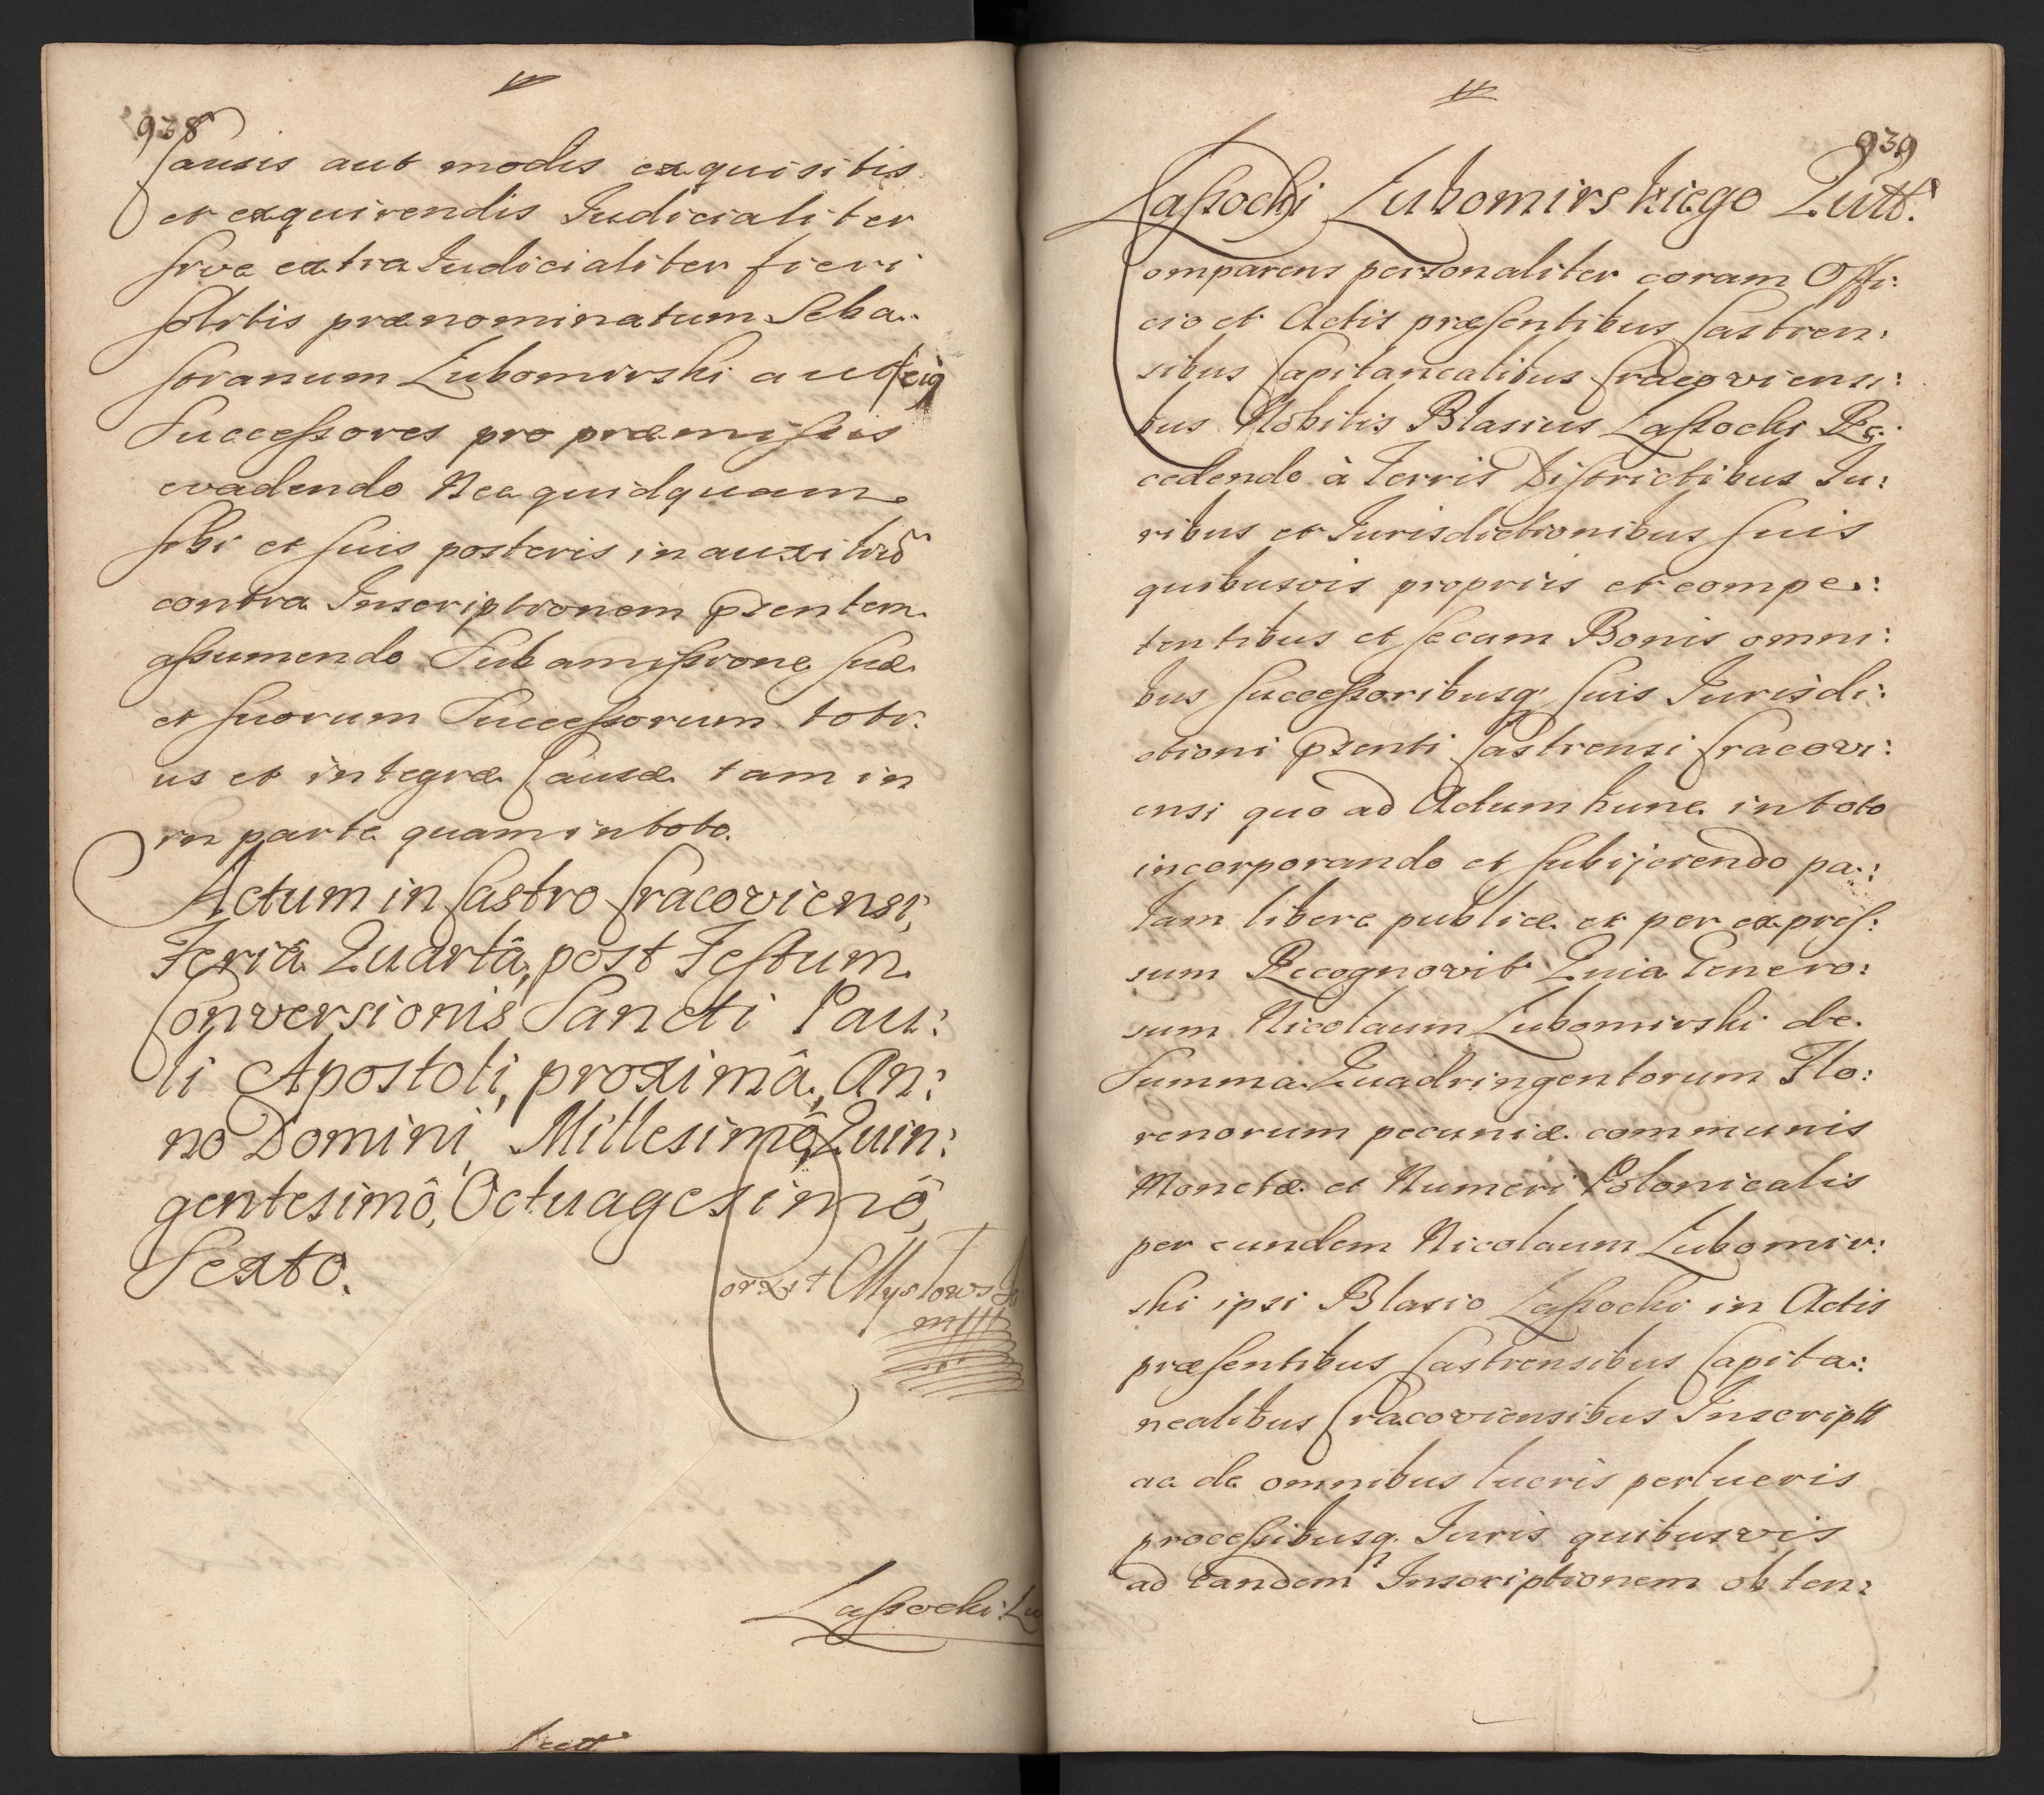 938
Causis aut modis exquisitis
et exquirendis Iudicialiter
sive extraIudicialiter fieri
solitis prænominatum Seba„
stianum Lubomirski aut eiq
Successores pro præmissis
evadendo Nec quidquam
sibi et suis posteris in auxiliũ
contra Inscriptionem pñsentem
assumendo Sub amissione suæ
et suorum Successorum toti:
us et integræ Causæ tam in
in parte quam in toto.
Actum in Castro Cracoviensi,
Feriâ Quartâ, post Festum
Conversionis Sancti Pau:
li Apostoli, proximâ, An:
no Domini, Millesimô, Quin:
gentesimô, Octuagesimô,
Sexto.
Correxit Mysłowski
Lassocki: Lu
939
Lassocki Lubomirskiego Quitt:
Comparens personaliter coram Offi:
cio et Actis præsentibus Castren:
sibus Capitanealibus Cracoviensi:
bus Nobilis Blasius Lassocki Re:
cedendo à Terris Districtibus Iu:
ribus et Iurisdictionibus suis
quibusvis propriis et compe:
tentibus et secum Bonis omni:
bus successoribusq suis Iurisdi:
ctioni pñsenti Castrensi Cracovi:
ensi quo ad Actum hunc in toto
incorporando et subijciendo pa:
lam libere publice et per expres:
sum Recognovit Quia Genero:
sum Nicolaum Lubomirski de
Summa Quadringentorum Flo:
renorum pecuniæ communis
Monetæ et Numeri Polonicalis
per eundem Nicolaum Lubomir:
ski ipsi Blasio Lassocki in Actis
præsentibus Castrensibus Capita:
nealibus Cracoviensibus Inscript
ac de omnibus lucris perlucris
processibusq Iuris quibusvis
ad eandem Inscriptionem obten: